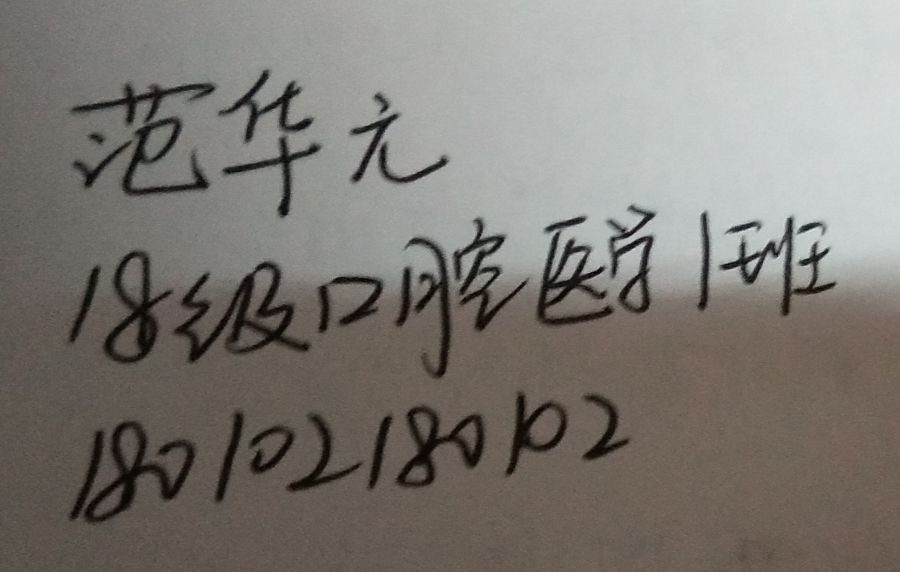 范华元
18级口腔医学1班
180102180102